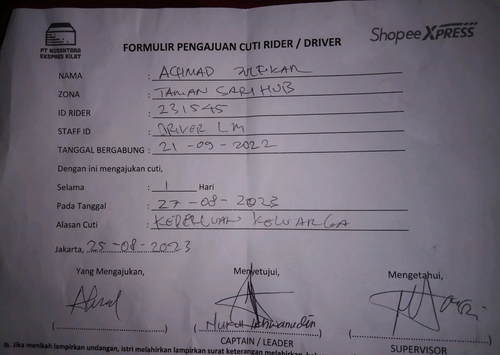 PT NUSANTARA
EKSPRES KILAT
Shopee XPRESS
FORMULIR PENGAJUAN CUTI RIDER / DRIVER
NAMA : ACHMAD ZULEKAR
ZONA : TAMAN SARI HUB
ID RIDER : 231545
STAFF ID : DRIVER LM
TANGGAL BERGABUNG : 21-09-2022
Dengan ini mengajukan cuti,
Selama : 1 Hari
Pada Tanggal : 27-08-2023
Alasan Cuti : KEPERLUAN KELUARGA
Jakarta, 25-08-2023
Yang Mengajukan, Menyetujui, Mengetahui,
( ) ( Nurul Ikhwanudin ) ( )
CAPTAIN / LEADER SUPERVISOR
Nb. Jika menikah lampirkan undangan, istri melahirkan lampirkan surat keterangan melahirkan,